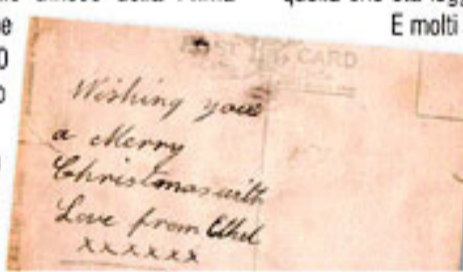 della
E molti
POST CARD
Wishing you
a Merry
Christmas with
Love from Ethel
xxxxxx